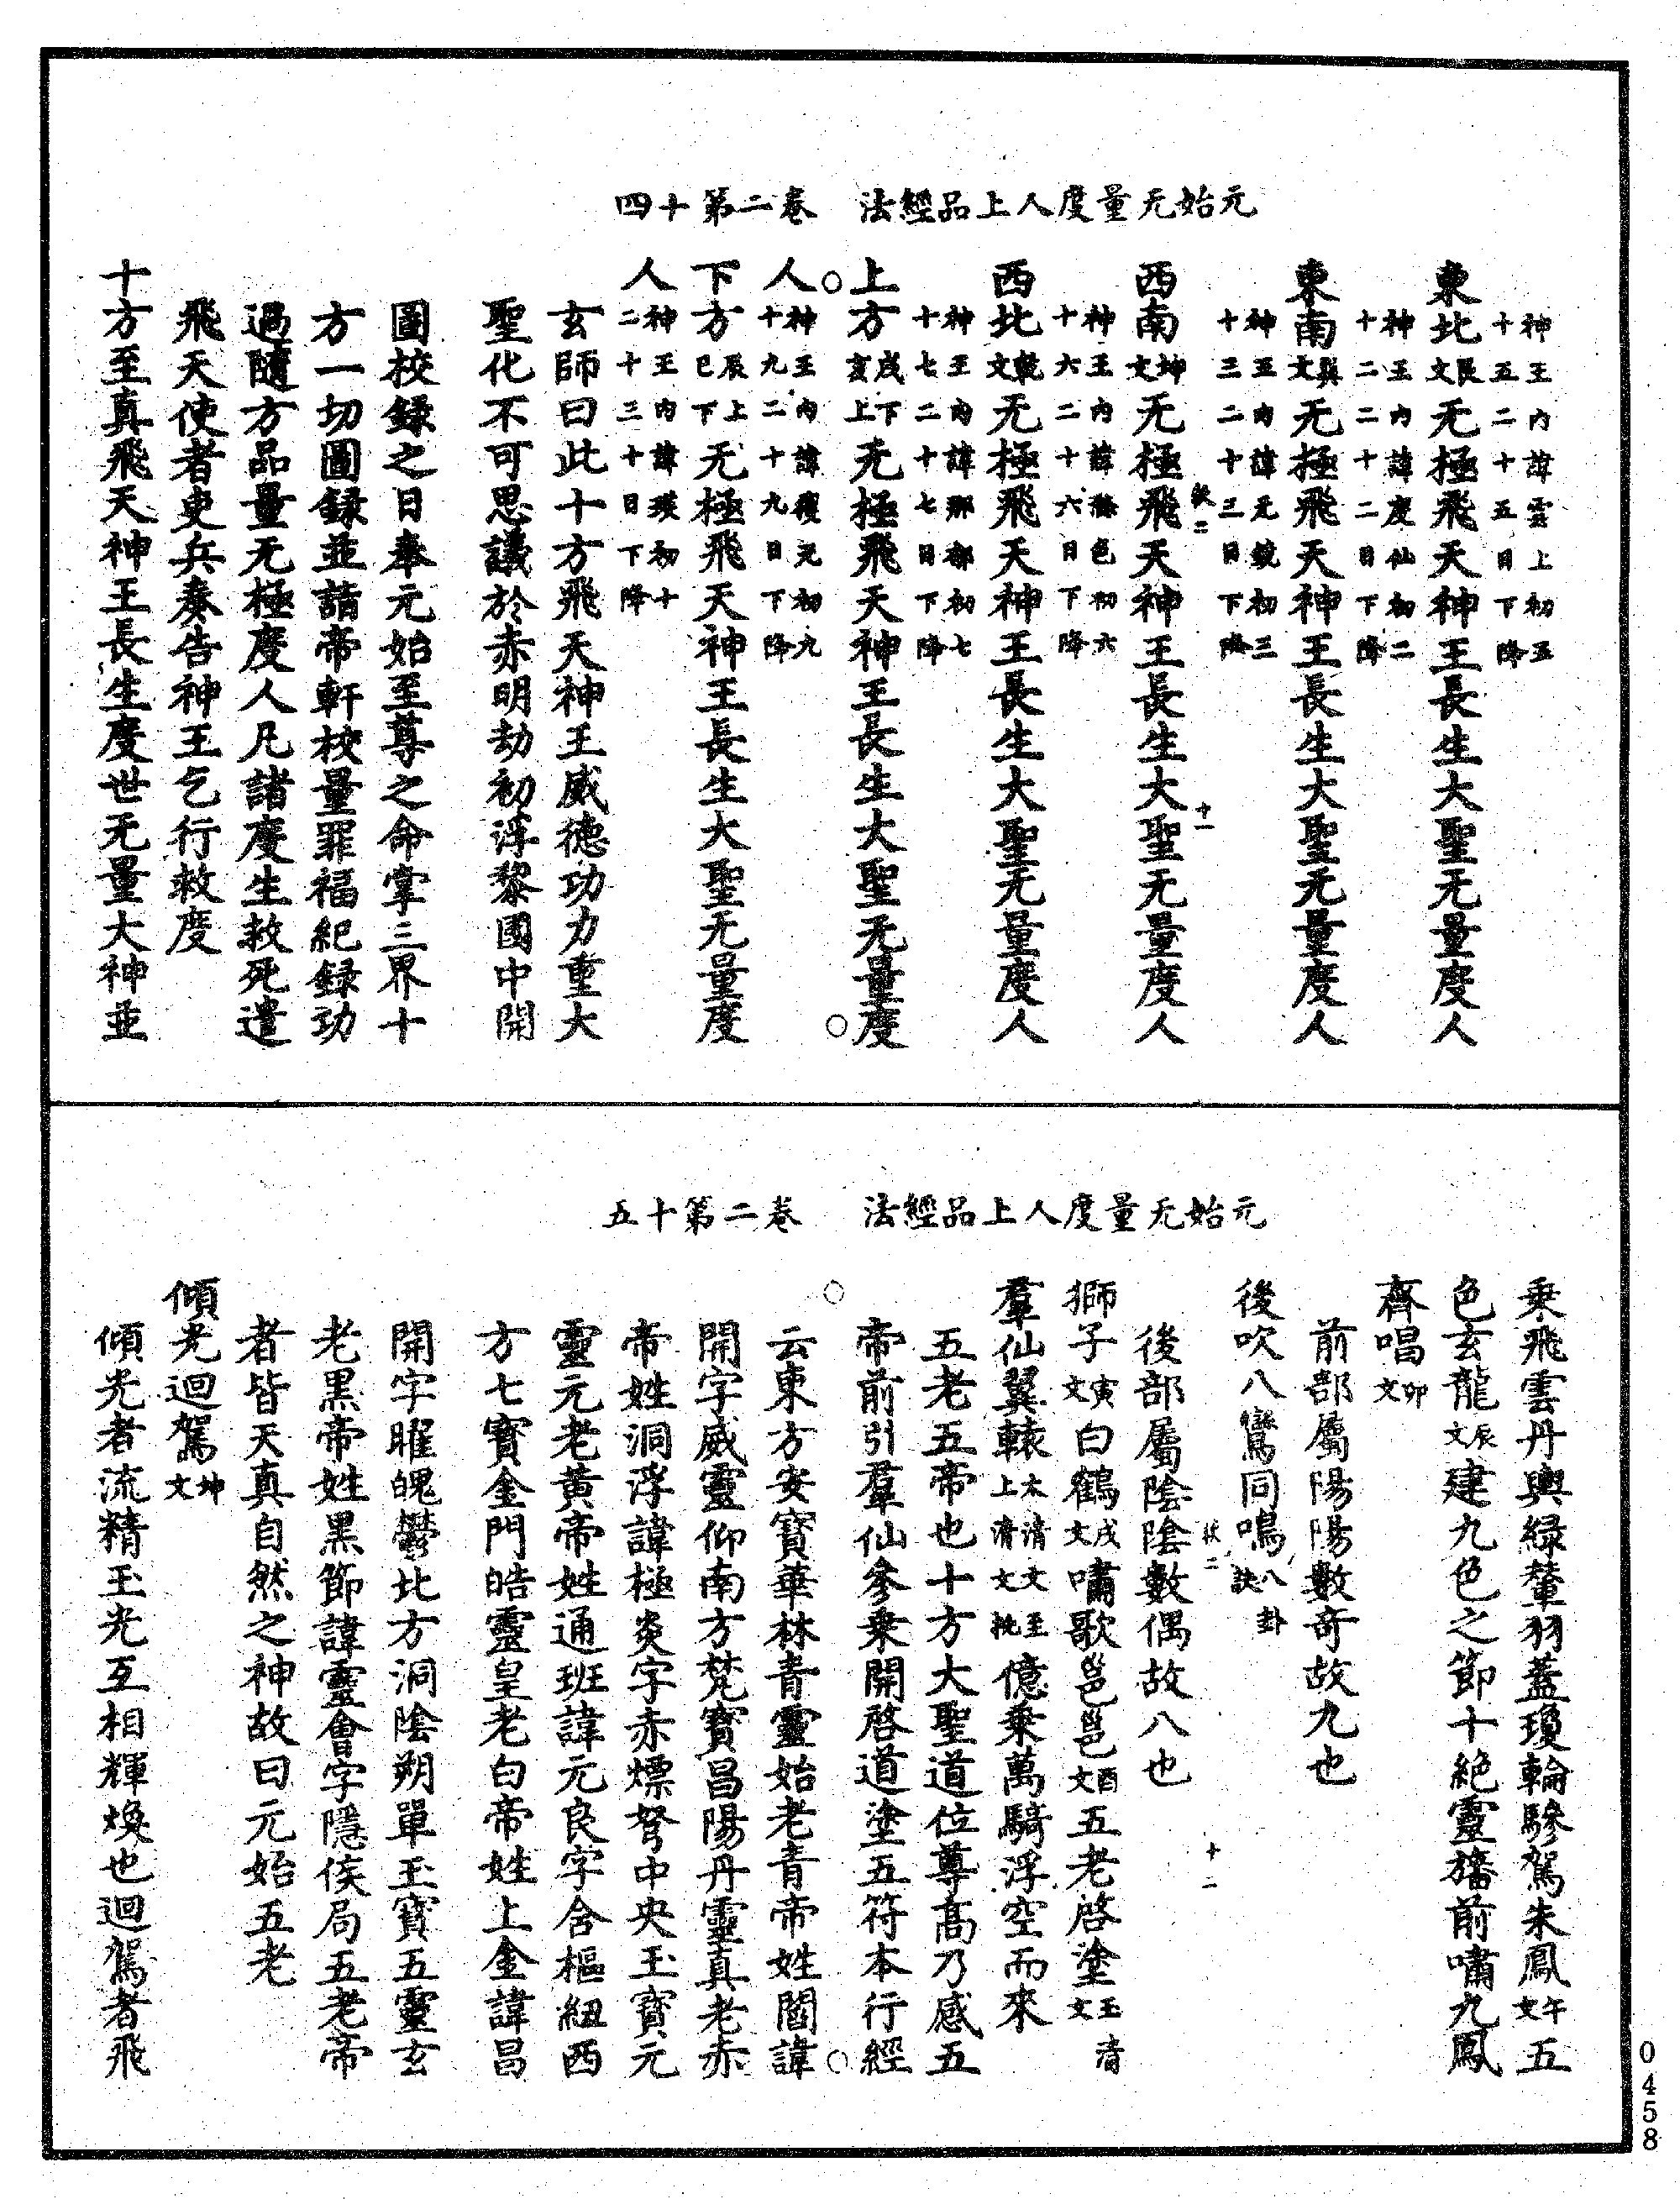 元始无量度人上品經法　卷二第十四
神王內諱雲上初五
十五二十五日下降
東北艮文无極飛天神王長生大聖无量度人
神王內諱度仙初二
十二二十二日下降
東南巽文无極飛天神王長生大聖无量度人
神王內諱元競初三
十三二十三日下降
西南坤文无極飛天神王長生大聖无量度人
神王內諱 色初六
十六二十六日下降
西北乾文无極飛天神王長生大聖无量度人
神王內諱那都初七
十七二十七日下降
上方戌下亥上无極飛天神王長生大聖无量度
人神王內諱 元初九十九二十九日下降
下方辰上巳下无極飛天神王長生大聖无量度
人神王內諱瑛初十二十三十日下降
玄師曰此十方飛天神王威德功力重大
聖化不可思議於赤明劫初浮黎國中開
圖校録之日奉元始至尊之命掌三界十
方一切圖録並詣帝軒校量罪福紀録功
過隨方品量无極度人凡諸度生救死遣
飛天使者吏兵奏告神王乞行救度
十方至真飛天神王長生度世无量大神並
元始无量度人上品經法　卷二第十五
乘飛雲丹輿緑輦羽蓋瓊輪驂駕朱鳳午文五
色玄龍辰文建九色之節十絶靈旛前嘯九鳳
齊唱卯文
前部屬陽陽數奇故九也
後吹八鸞同鳴八卦訣
後部屬陰陰數偶故八也
獅子寅文白鶴戌文嘯歌邕邕酉文五老啓塗玉清文
羣仙翼轅太清文至上清文挽億乘萬騎浮空而來
五老五帝也十方大聖道位尊高乃感五
帝前引羣仙參乘開啓道塗五符本行經
云東方安寶華林青靈始老青帝姓閻諱
開字威靈仰南方梵寶昌陽丹靈真老赤
帝姓洞浮諱極炎字赤熛弩中央玉寶元
靈元老黃帝姓通班諱元良字含樞紐西
方七寶金門皓靈皇老白帝姓上金諱昌
開字曜魄鬱北方洞陰朔單玉寶五靈玄
老黑帝姓黑節諱靈會字隱侯局五老帝
者皆天真自然之神故曰元始五老
傾光迴駕坤文
傾光者流精玉光互相輝煥也迴駕者飛
0458